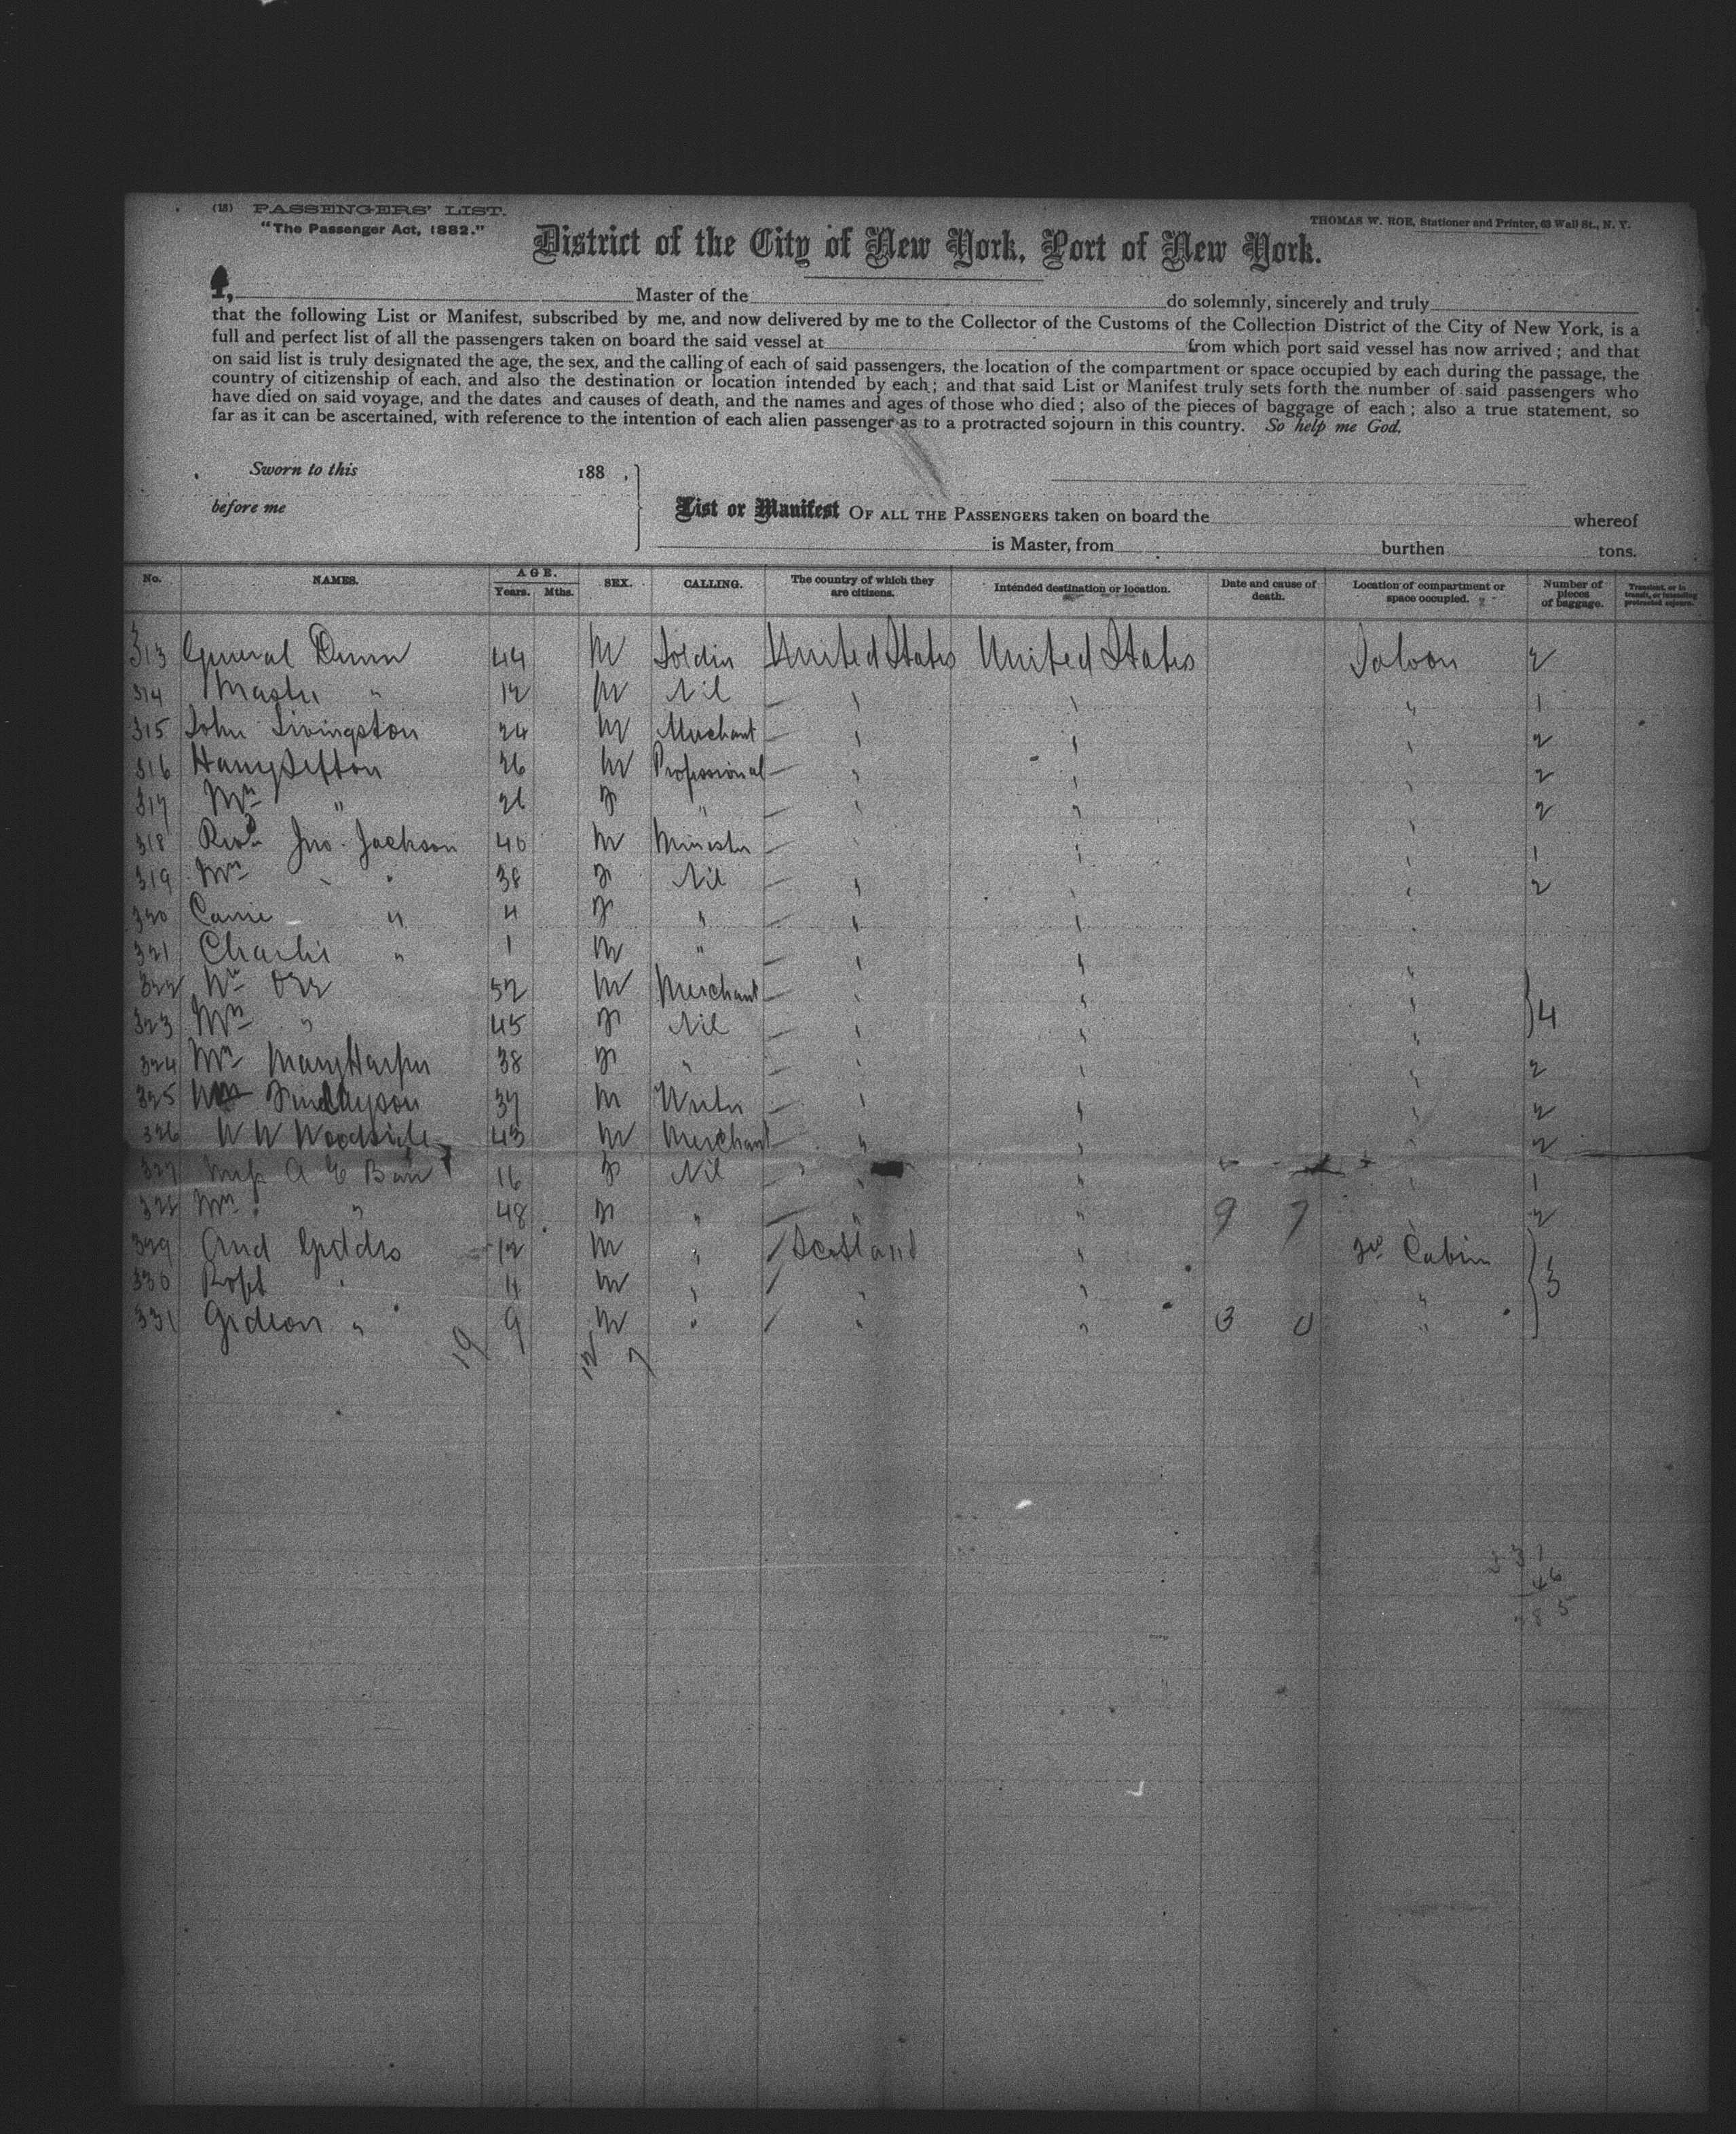 (18) PASSENGERS' LIST.
"The Passenger Act, 1882."
THOMAS W. ROE, Stationer and Printer, 63 Wall St., N. Y.
District of the City of New York, Port of New York.
I, Master of the do solemnly, sincerely and truly
that the following List or Manifest, subscribed by me, and now delivered by me to the Collector of the Customs of the Collection District of the City of New York, is a
full and perfect list of all the passengers taken on board the said vessel at from which port said vessel has now arrived ; and that
on said list is truly designated the age, the sex, and the calling of each of said passengers, the location of the compartment or space occupied by each during the passage, the
country of citizenship of each, and also the destination or location intended by each ; and that said List or Manifest truly sets forth the number of said passengers who
have died on said voyage, and the dates and causes of death, and the names and ages of those who died ; also of the pieces of baggage of each ; also a true statement, so
far as it can be ascertained, with reference to the intention of each alien passenger as to a protracted sojourn in this country. So help me God.
Sworn to this 188 ,
before me
List or Manifest OF ALL THE PASSENGERS taken on board the whereof
is Master, from burthen tons.
No. NAMES. AGE. Years. Mths. SEX. CALLING. The country of which they are citizens. Intended destination or location. Date and cause of death. Location of compartment or space occupied. Number of pieces of baggage. Transient, or in transit, or intending protracted sojourn.
313 General Dunn 44 M Soldier United States United States Saloon 2
314 Master " 12 M Nil " " " 1
315 John Livingston 24 M Merchant " " " 2
316 Harry Sefton 26 M Professional " " " 2
317 Mrs " 26 F " " " " 2
318 Revd Jno. Jackson 40 M Minister " " " 1
319 Mrs " " 38 F Nil " " " 2
320 Carrie " 4 F " " " "
321 Charlie " 1 M " " " "
322 Mr Orr 52 M Merchant " " " 4
323 Mrs " 45 F Nil " " "
324 Mrs Mary Harper 38 F " " " " 2
325 Findlayson 37 M Writer " " " 2
326 W W Woodside 43 M Merchant " " " 2
327 Miss A E Barr 16 F Nil " " " 1
328 Mrs " 48 F " " " 9 7 " 2
329 And Geddes 12 M " Scotland " Cabin 3
330 Robt " 11 M " " " "
331 Gideon " 9 M " " " 3 0 "
19 12 7
331
46
285